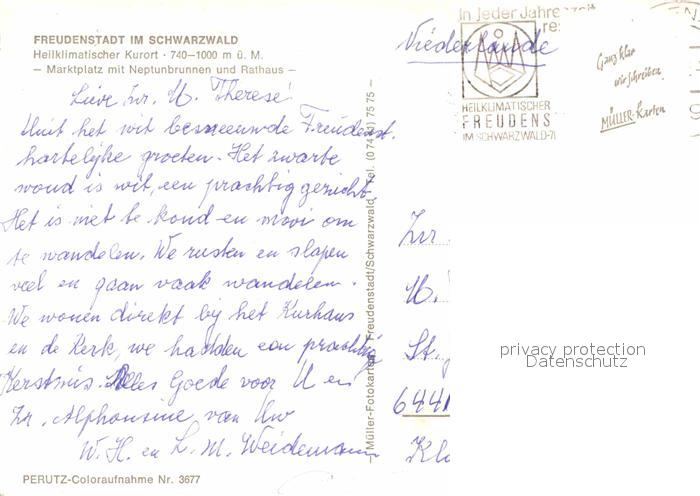 FREUDENSTADT IM SCHWARZWALD
Heilklimatischer Kurort · 740—1000 m ü. M.
— Marktplatz mit Neptunbrunnen und Rathaus —
Lieve Zr. M. Therese
Uuit het wit besneeuwde Freudenst.
hartelijke groeten. Het zwarte
woud is wit, een prachtig gezicht.
Het is niet te koud en mooi om
te wandelen. We rusten en slapen
veel en gaan vaak wandelen.
We wonen direkt bij het Kurhaus
en de Kerk, we hadden een prachtig
Kerstmis. Alles Goede voor U en
Zr. Alphonsine van Uw
W. H. en L. M. Weidemann
PERUTZ-Coloraufnahme Nr. 3677
— Müller-Fotokarten, Freudenstadt/Schwarzwald, Tel. (0 74 41) 75 75 —
In jeder Jahreszeit
HEILKLIMATISCHER
FREUDENS
IM SCHWARZWALD-71
Niederlande
Ganz klar
wir schreiben
MÜLLER-Karten
Zr.
M.
St.
6441
Kl
privacy protection
Datenschutz